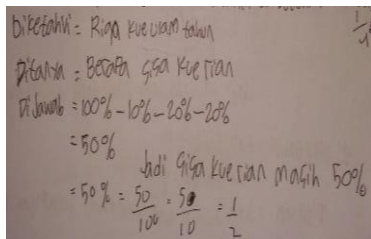 Diketahui = Riga kue ulam tahun
Ditanya = Berapa sisa kue rian
Dijawab = 100% - 10% - 20% - 20%
= 50%
Jadi sisa kue rian masih 50%
= 50% = 50/100 = 50/10 = 1/2